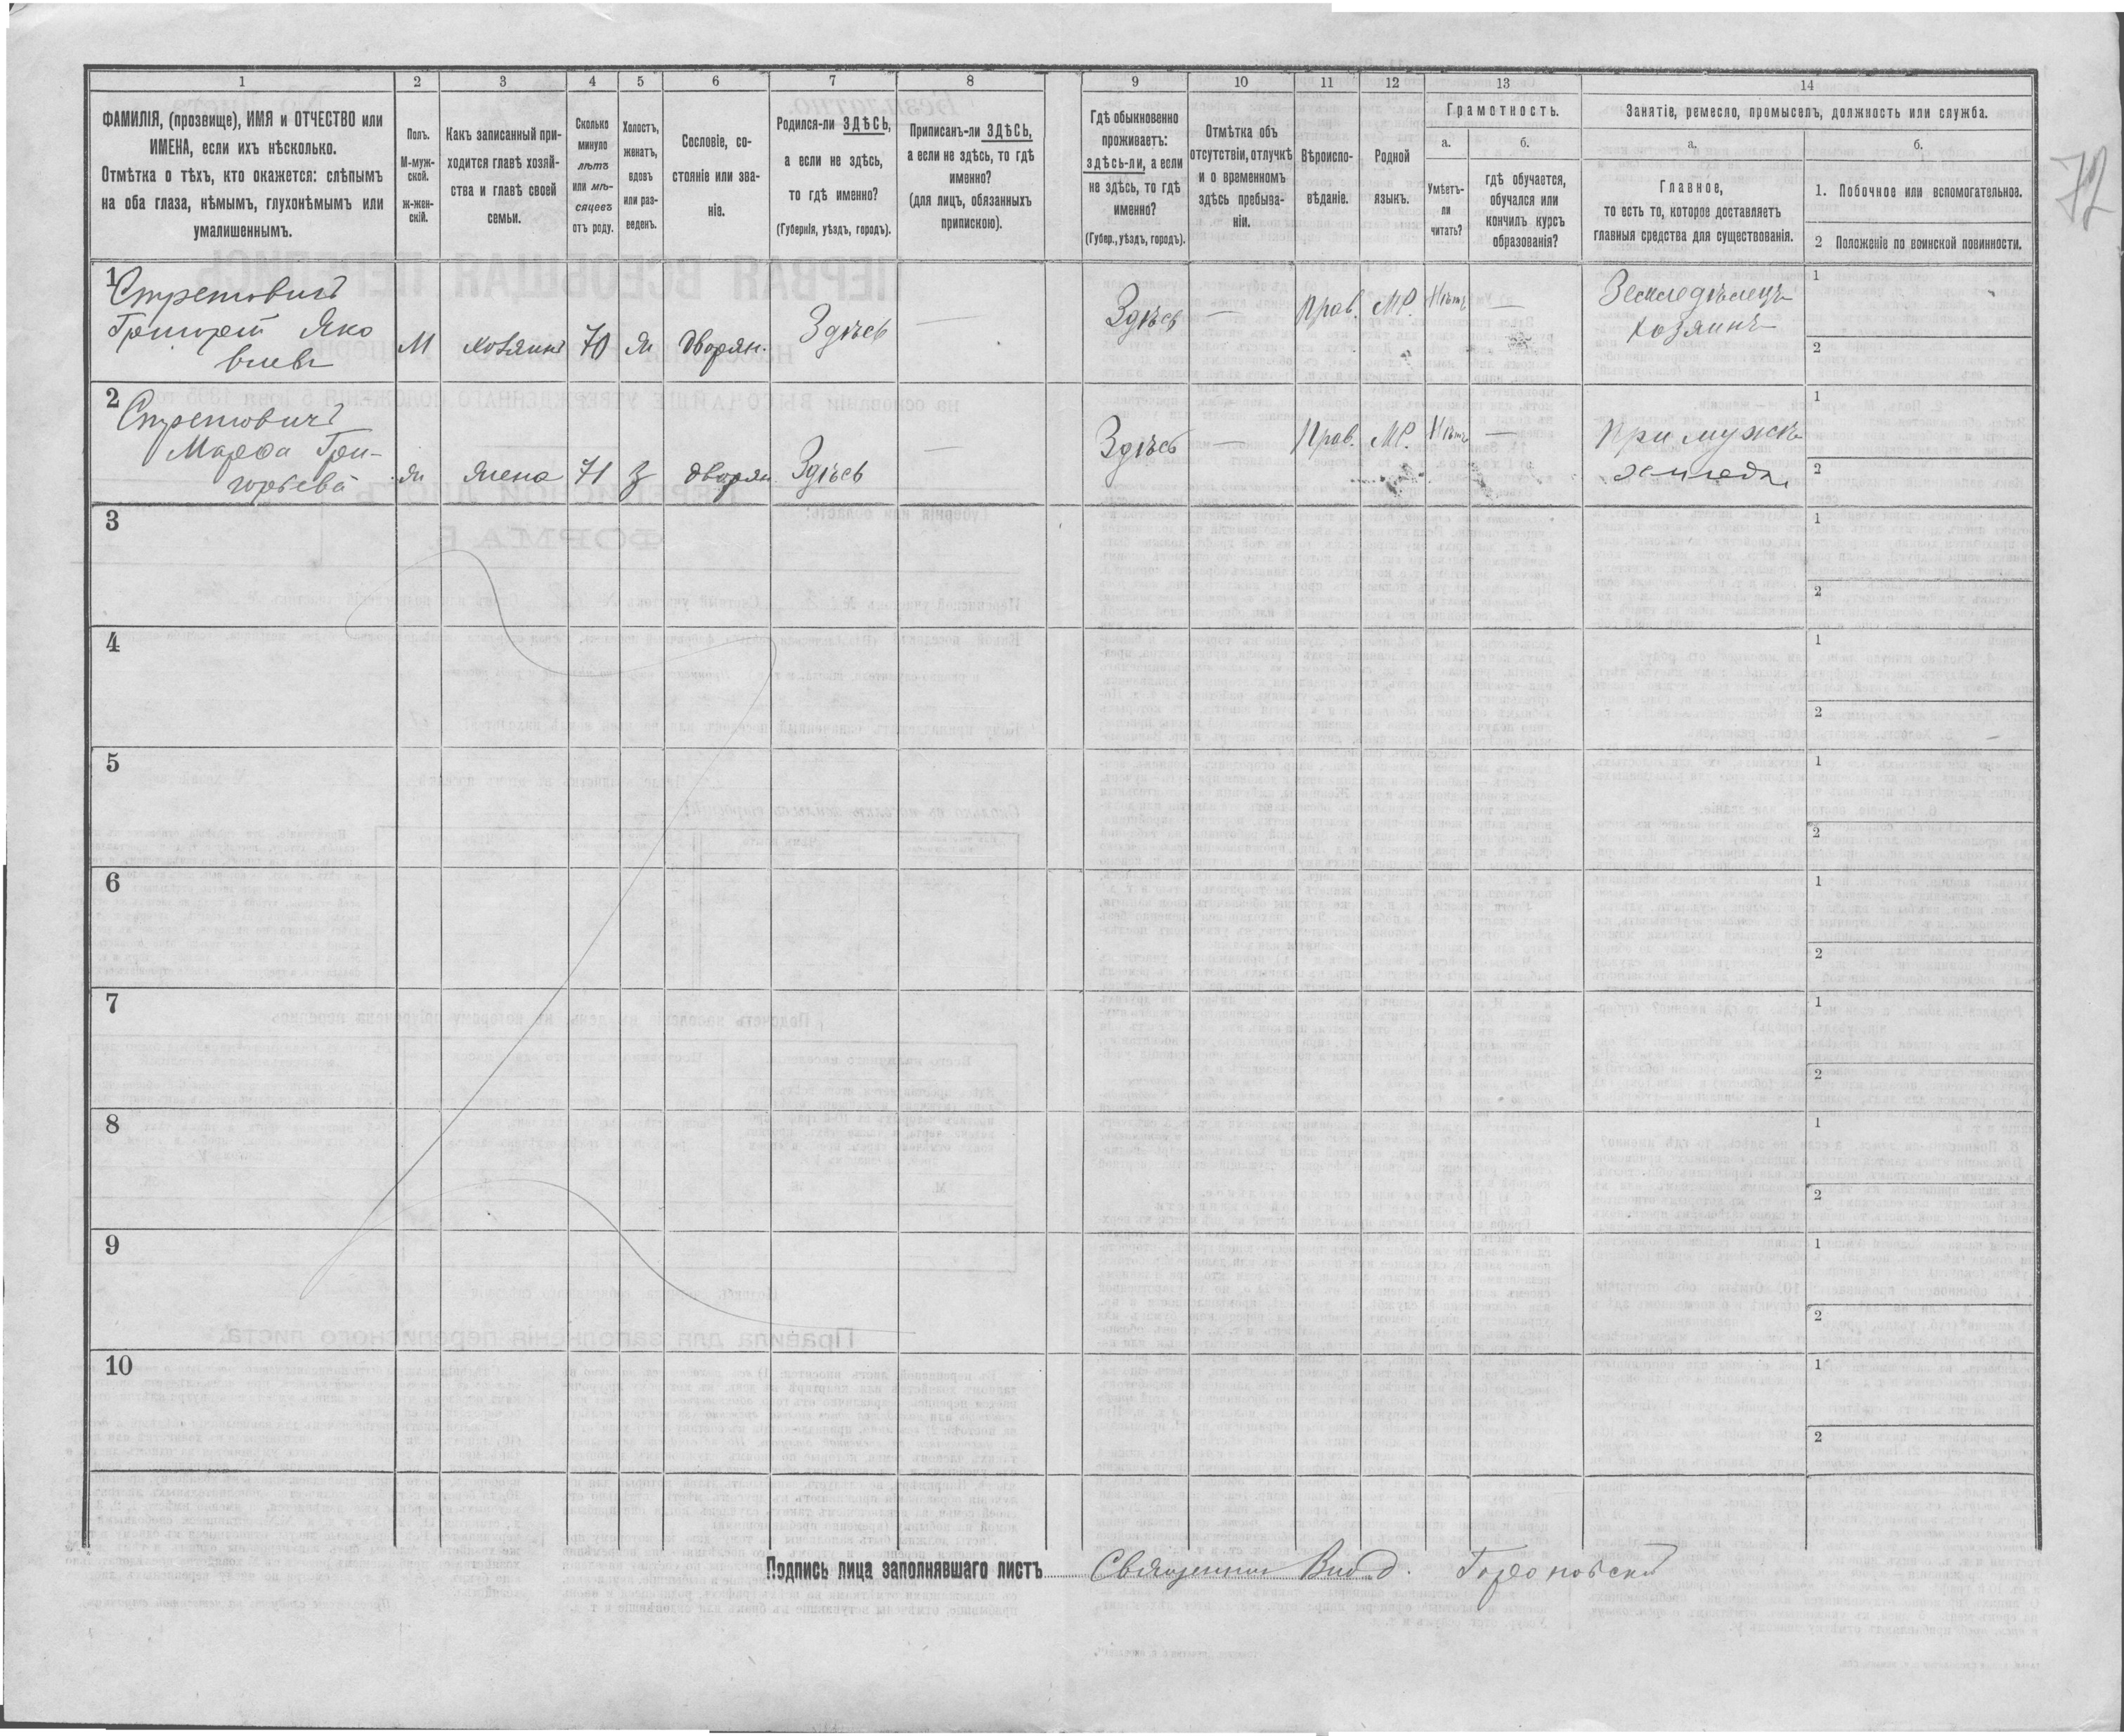 72
1 2 3 4 5 6 7 8 9 10 11 12 13 14
ФАМИЛІЯ, (прозвище), ИМЯ и ОТЧЕСТВО или
ИМЕНА, если ихъ нѣсколько.
Отмѣтка о тѣхъ, кто окажется: слѣпымъ
на оба глаза, нѣмымъ, глухонѣмымъ или
умалишеннымъ.
Полъ.
М-муж-
ской.
ж-жен-
скій.
Какъ записанный при-
ходится главѣ хозяй-
ства и главѣ своей
семьи.
Сколько
минуло
лѣтъ
или мѣ-
сяцевъ
отъ роду.
Холостъ,
женатъ,
вдовъ
или раз-
веденъ.
Сословіе, со-
стояніе или зва-
ніе.
Родился-ли ЗДѢСЬ,
а если не здѣсь,
то гдѣ именно?
(Губернія, уѣздъ, городъ).
Приписанъ-ли ЗДѢСЬ,
а если не здѣсь, то гдѣ
именно?
(для лицъ, обязанныхъ
припискою).
Гдѣ обыкновенно
проживаетъ:
здѣсь-ли, а если
не здѣсь, то гдѣ
именно?
(Губер., уѣздъ, городъ).
Отмѣтка объ
отсутствіи, отлучкѣ
и о временномъ
здѣсь пребыва-
ніи.
Вѣроиспо-
вѣданіе.
Родной
языкъ.
Грамотность.
а.
Умѣетъ-
ли
читать?
б.
гдѣ обучается,
обучался или
кончилъ курсъ
образованія?
Занятіе, ремесло, промыселъ, должность или служба.
а.
Главное,
то есть то, которое доставляетъ
главныя средства для существованія.
б.
1. Побочное или вспомогательное.
2 Положеніе по воинской повинности.
1
Стретовичъ
Григорій Яко
влевъ
М хозяинъ 70 ж дворян. Здѣсь —
Здѣсь — Прав. МР. Нѣтъ —
Земледѣлецъ
хозяинъ
1
2
2
Стретовичъ
Марфа Гри-
горьева
ж жена 71 з дворян Здѣсь —
Здѣсь — Прав. МР. Нѣтъ —
При мужѣ
землед.
1
2
3
1
2
4
1
2
5
1
2
6
1
2
7
1
2
8
1
2
9
1
2
10
1
2
Подпись лица заполнявшаго листъ Священник